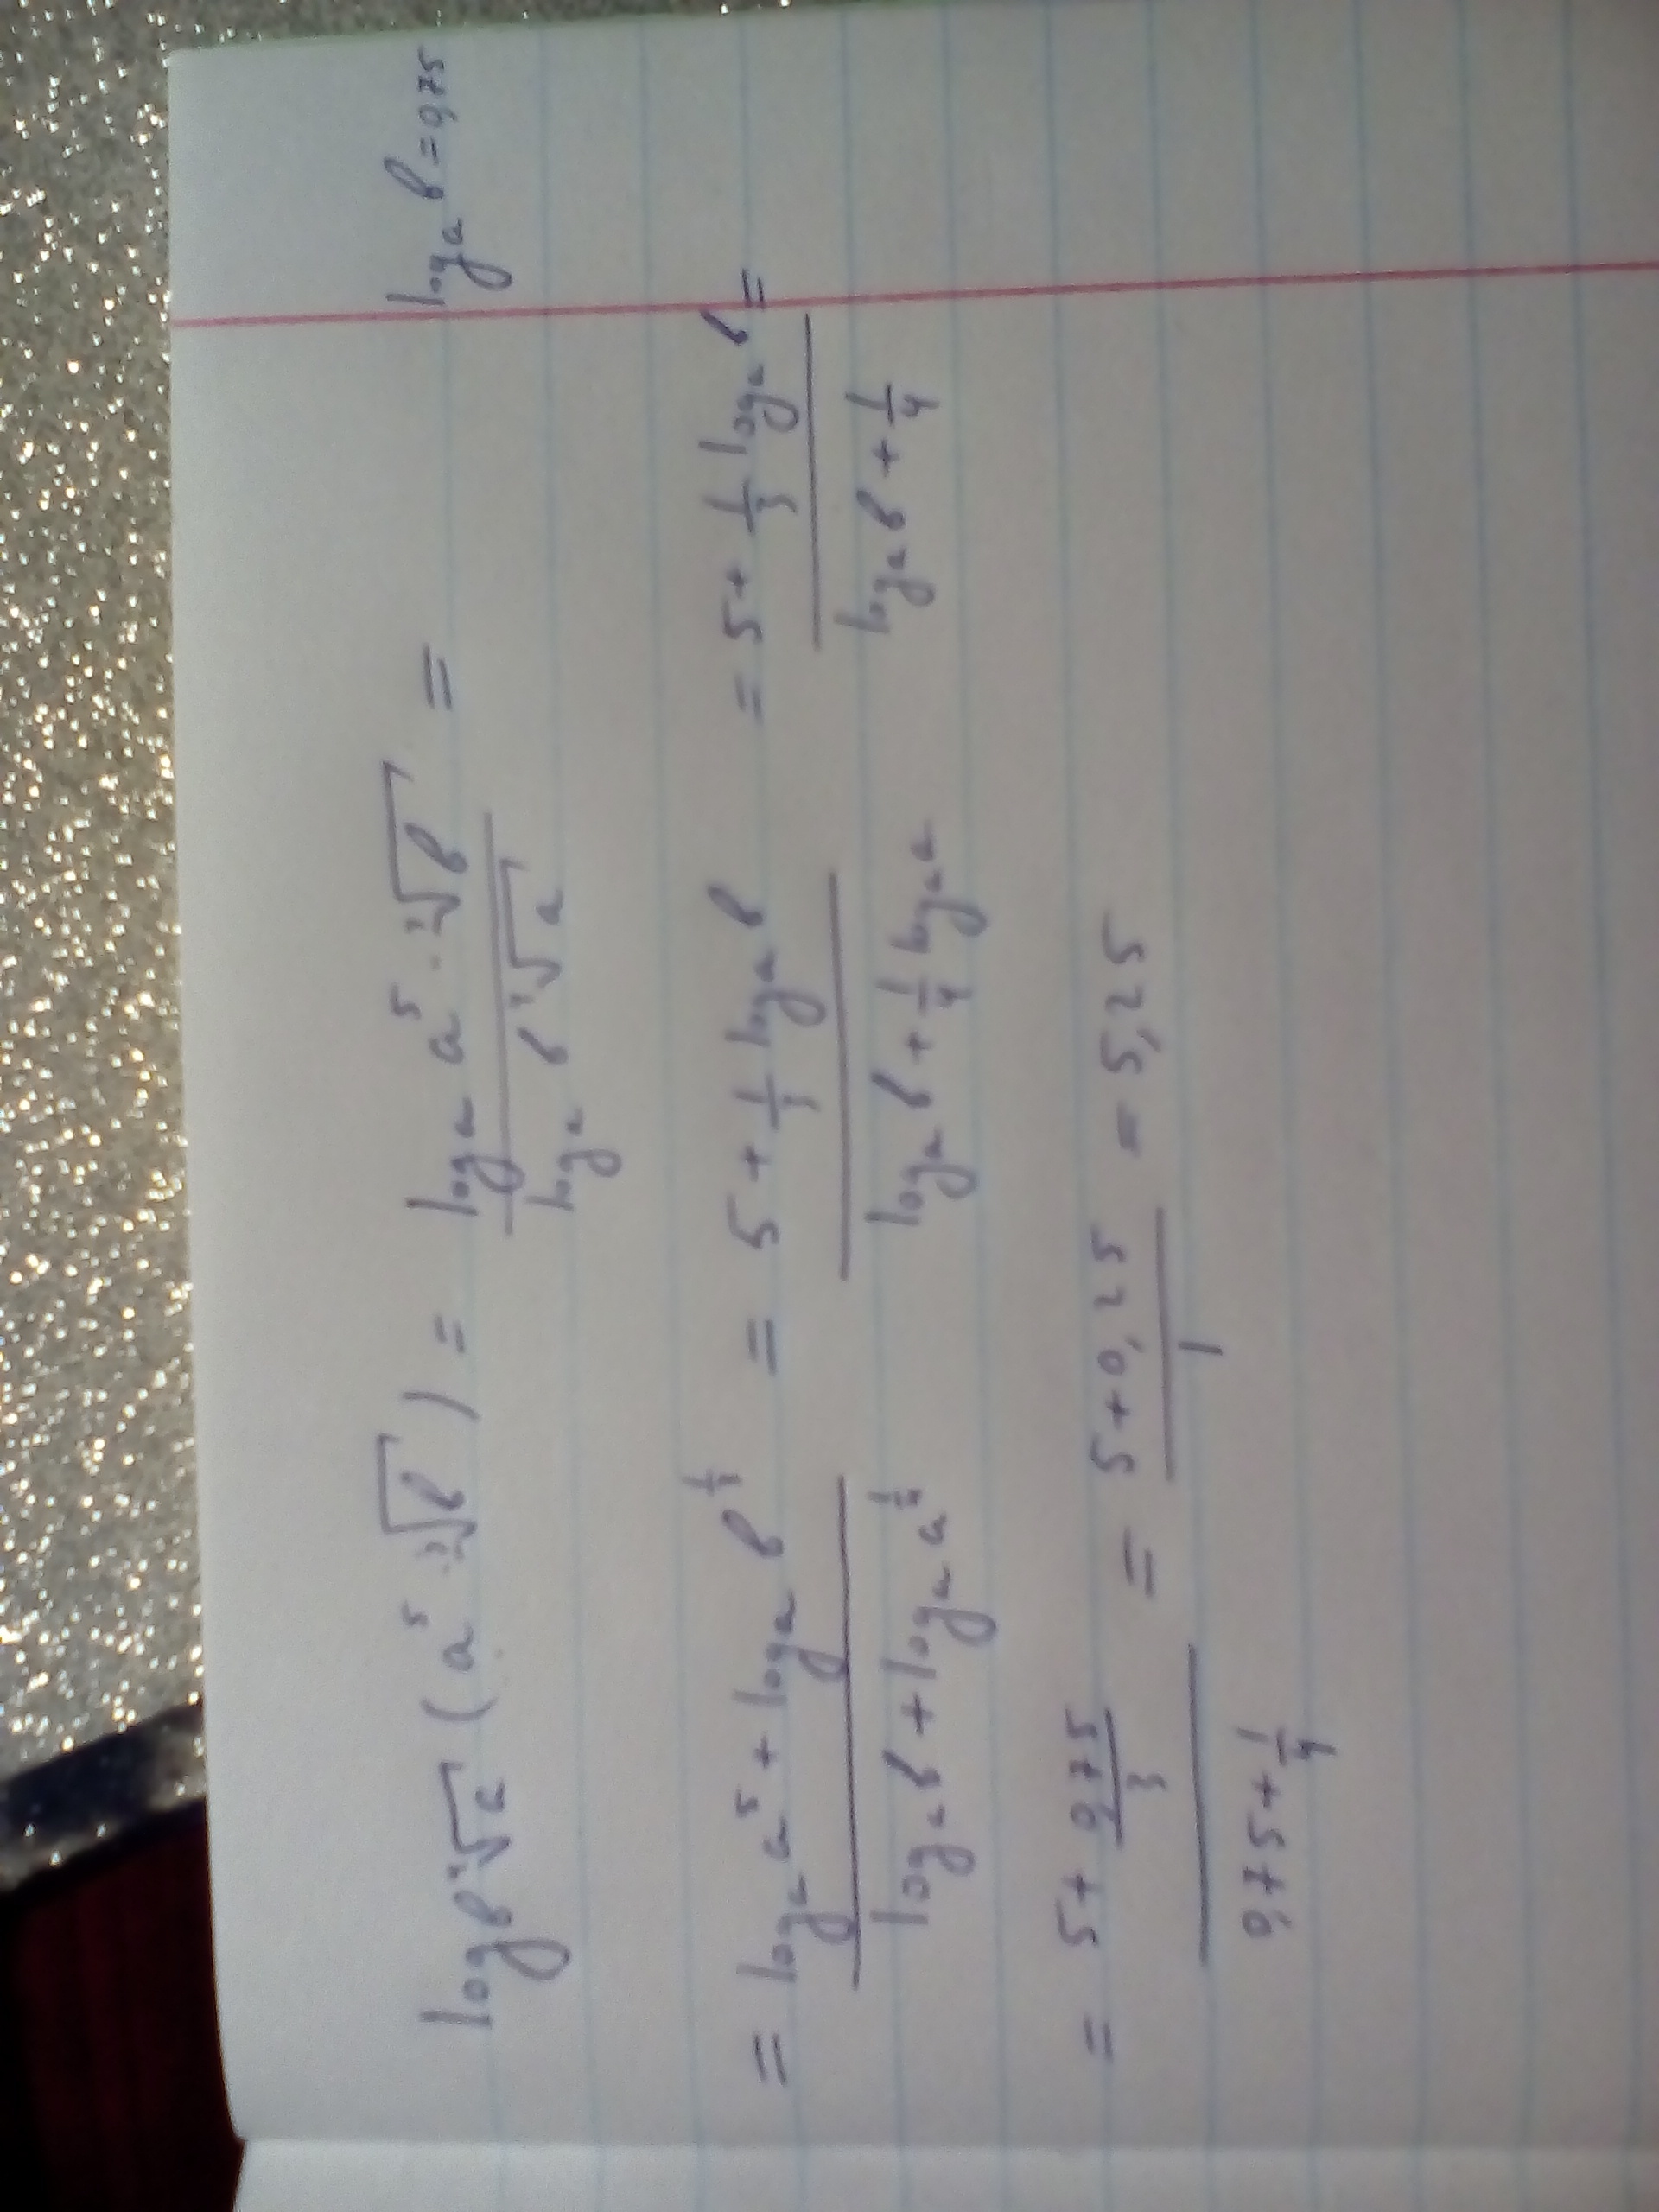 log_{b⁴√a} (a⁵·³√b) = \frac{log_a a⁵·³√b}{log_a b⁴√a} = log_a b = 0,75
= \frac{log_a a⁵ + log_a b^{\frac{1}{3}}}{log_a b + log_a a^{\frac{1}{4}}} = \frac{5 + \frac{1}{3} log_a b}{log_a b + \frac{1}{4} log_a a} = \frac{5 + \frac{1}{3} log_a b}{log_a b + \frac{1}{4}} =
= \frac{5 + \frac{0,75}{3}}{0,75 + \frac{1}{4}} = \frac{5 + 0,25}{1} = 5,25